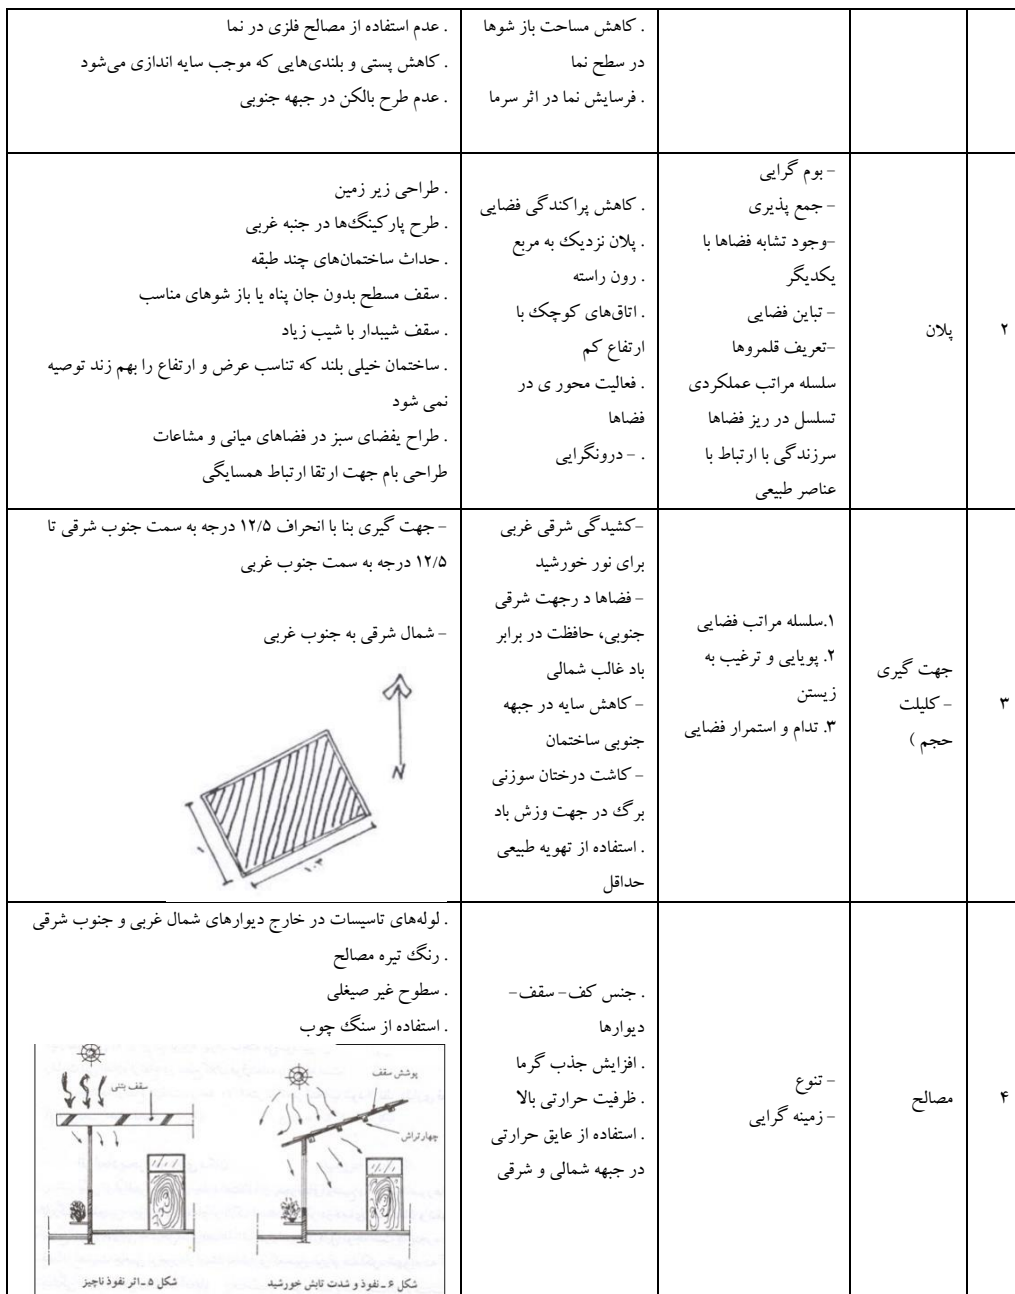 . کاهش مساحت باز شوها
در سطح نما
. فرسایش نما در اثر سرما
. عدم استفاده از مصالح فلزی در نما
. کاهش پستی و بلندی‌هایی که موجب سایه اندازی می‌شود
. عدم طرح بالکن در جبهه جنوبی
۲
پلان
- بوم گرایی
- جمع پذیری
-وجود تشابه فضاها با
یکدیگر
- تباین فضایی
-تعریف قلمروها
سلسله مراتب عملکردی
تسلسل در ریز فضاها
سرزندگی با ارتباط با
عناصر طبیعی
. کاهش پراکندگی فضایی
. پلان نزدیک به مربع
. رون راسته
. اتاق‌های کوچک با
ارتفاع کم
. فعالیت محور ی در
فضاها
. - درونگرایی
. طراحی زیر زمین
. طرح پارکینگ‌ها در جنبه غربی
. حداث ساختمان‌های چند طبقه
. سقف مسطح بدون جان پناه یا باز شوهای مناسب
. سقف شیبدار با شیب زیاد
. ساختمان خیلی بلند که تناسب عرض و ارتفاع را بهم زند توصیه
نمی شود
. طراح یفضای سبز در فضاهای میانی و مشاعات
طراحی بام جهت ارتقا ارتباط همسایگی
۳
جهت گیری
- کلیلت
حجم )
۱.سلسله مراتب فضایی
۲. پویایی و ترغیب به
زیستن
۳. تدام و استمرار فضایی
-کشیدگی شرقی غربی
برای نور خورشید
- فضاها د رجهت شرقی
جنوبی، حافظت در برابر
باد غالب شمالی
- کاهش سایه در جبهه
جنوبی ساختمان
- کاشت درختان سوزنی
برگ در جهت وزش باد
. استفاده از تهویه طبیعی
حداقل
- جهت گیری بنا با انحراف ۱۲/۵ درجه به سمت جنوب شرقی تا
۱۲/۵ درجه به سمت جنوب غربی
- شمال شرقی به جنوب غربی
N
۱
۱۰۳
۴
مصالح
- تنوع
- زمینه گرایی
. جنس کف- سقف-
دیوارها
. افزایش جذب گرما
. ظرفیت حرارتی بالا
. استفاده از عایق حرارتی
در جبهه شمالی و شرقی
. لوله‌های تاسیسات در خارج دیوارهای شمال غربی و جنوب شرقی
. رنگ تیره مصالح
. سطوح غیر صیغلی
. استفاده از سنگ چوب
پوشش سقف
سقف بتنی
چهارتراش
شکل ۶ ـ نفوذ و شدت تابش خورشید
شکل ۵ ـ اثر نفوذ ناچیز